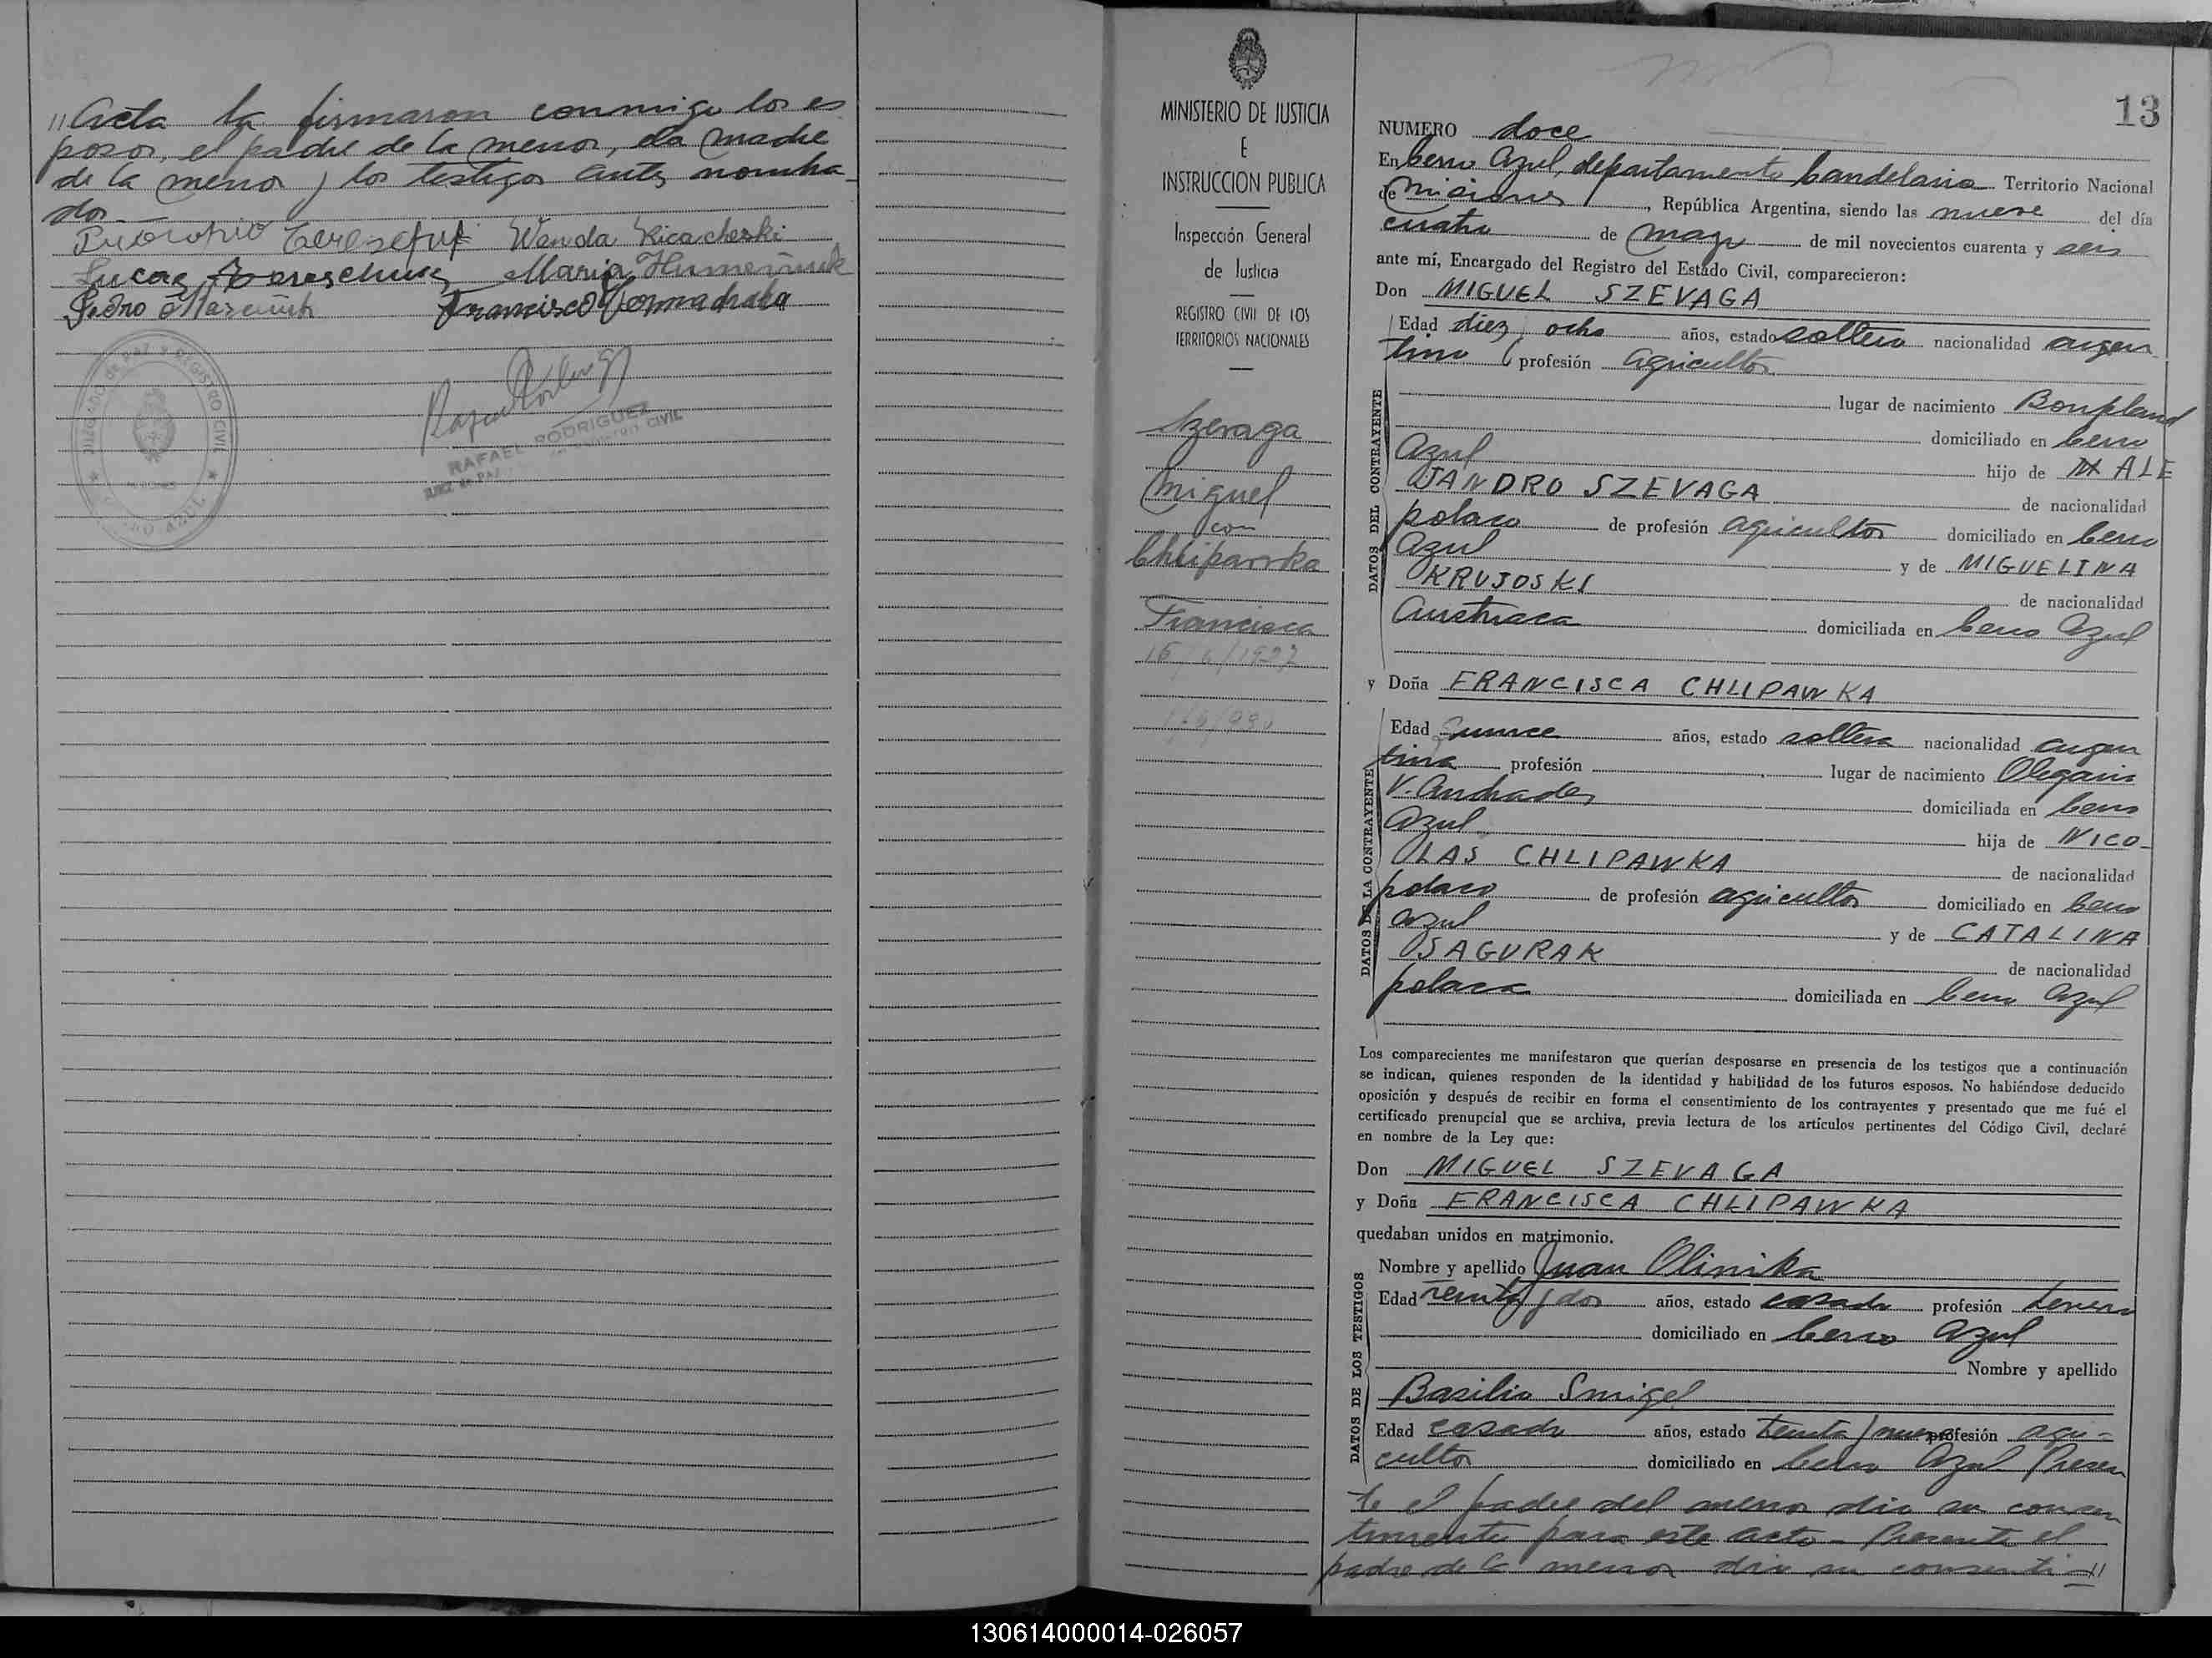 "Acta la firmaron conmigo los es
posos, el padre de la menor, la madre
de la menor y los testigos antes nombra-
dos.
Wanda Ricacheski
Lucas Maria Humeniuk
Pedro Francisco
RAFAEL RODRIGUEZ
JUEZ DE PAZ CIVIL
JUZGADO DE PAZ Y REGISTRO CIVIL
CERRO AZUL
MINISTERIO DE JUSTICIA
E
INSTRUCCION PUBLICA
Inspección General
de Justicia
REGISTRO CIVIL DE LOS
TERRITORIOS NACIONALES
Szevaga
Miguel
con
Chlipawka
Francisca
13
NUMERO doce
En Cerro Azul, departamento Candelaria Territorio Nacional
de Misiones, República Argentina, siendo las nueve del día
cuatro de mayo de mil novecientos cuarenta y seis
ante mí, Encargado del Registro del Estado Civil, comparecieron:
Don MIGUEL SZEVAGA
Edad diez y ocho años, estado soltero nacionalidad argen
tino profesión agricultor
lugar de nacimiento Bonpland
domiciliado en Cerro
Azul hijo de ALE
JANDRO SZEVAGA de nacionalidad
polaco de profesión agricultor domiciliado en Cerro
Azul y de MIGUELINA
KRUJOSKI de nacionalidad
Austriaca domiciliada en Cerro Azul
DATOS DEL CONTRAYENTE
y Doña FRANCISCA CHLIPAWKA
Edad quince años, estado soltera nacionalidad argen
tina profesión lugar de nacimiento Olegario
V. Andrades domiciliada en Cerro
Azul hija de NICO-
LAS CHLIPAWKA de nacionalidad
polaco de profesión agricultor domiciliado en Cerro
Azul y de CATALINA
SAGURAK de nacionalidad
polaca domiciliada en Cerro Azul
DATOS DE LA CONTRAYENTE
Los comparecientes me manifestaron que querían desposarse en presencia de los testigos que a continuación
se indican, quienes responden de la identidad y habilidad de los futuros esposos. No habiéndose deducido
oposición y después de recibir en forma el consentimiento de los contrayentes y presentado que me fué el
certificado prenupcial que se archiva, previa lectura de los artículos pertinentes del Código Civil, declaré
en nombre de la Ley que:
Don MIGUEL SZEVAGA
y Doña FRANCISCA CHLIPAWKA
quedaban unidos en matrimonio.
Nombre y apellido Juan Olinika
Edad treinta y dos años, estado casado profesión
domiciliado en Cerro Azul
Nombre y apellido
Basilio Smigel
Edad casado años, estado treinta y nueve profesión agri-
cultor domiciliado en Cerro Azul Presen
DATOS DE LOS TESTIGOS
te el padre del menor dio su consen
timiento para este acto - Presente el
padre de la menor dio su consenti-"
130614000014-026057